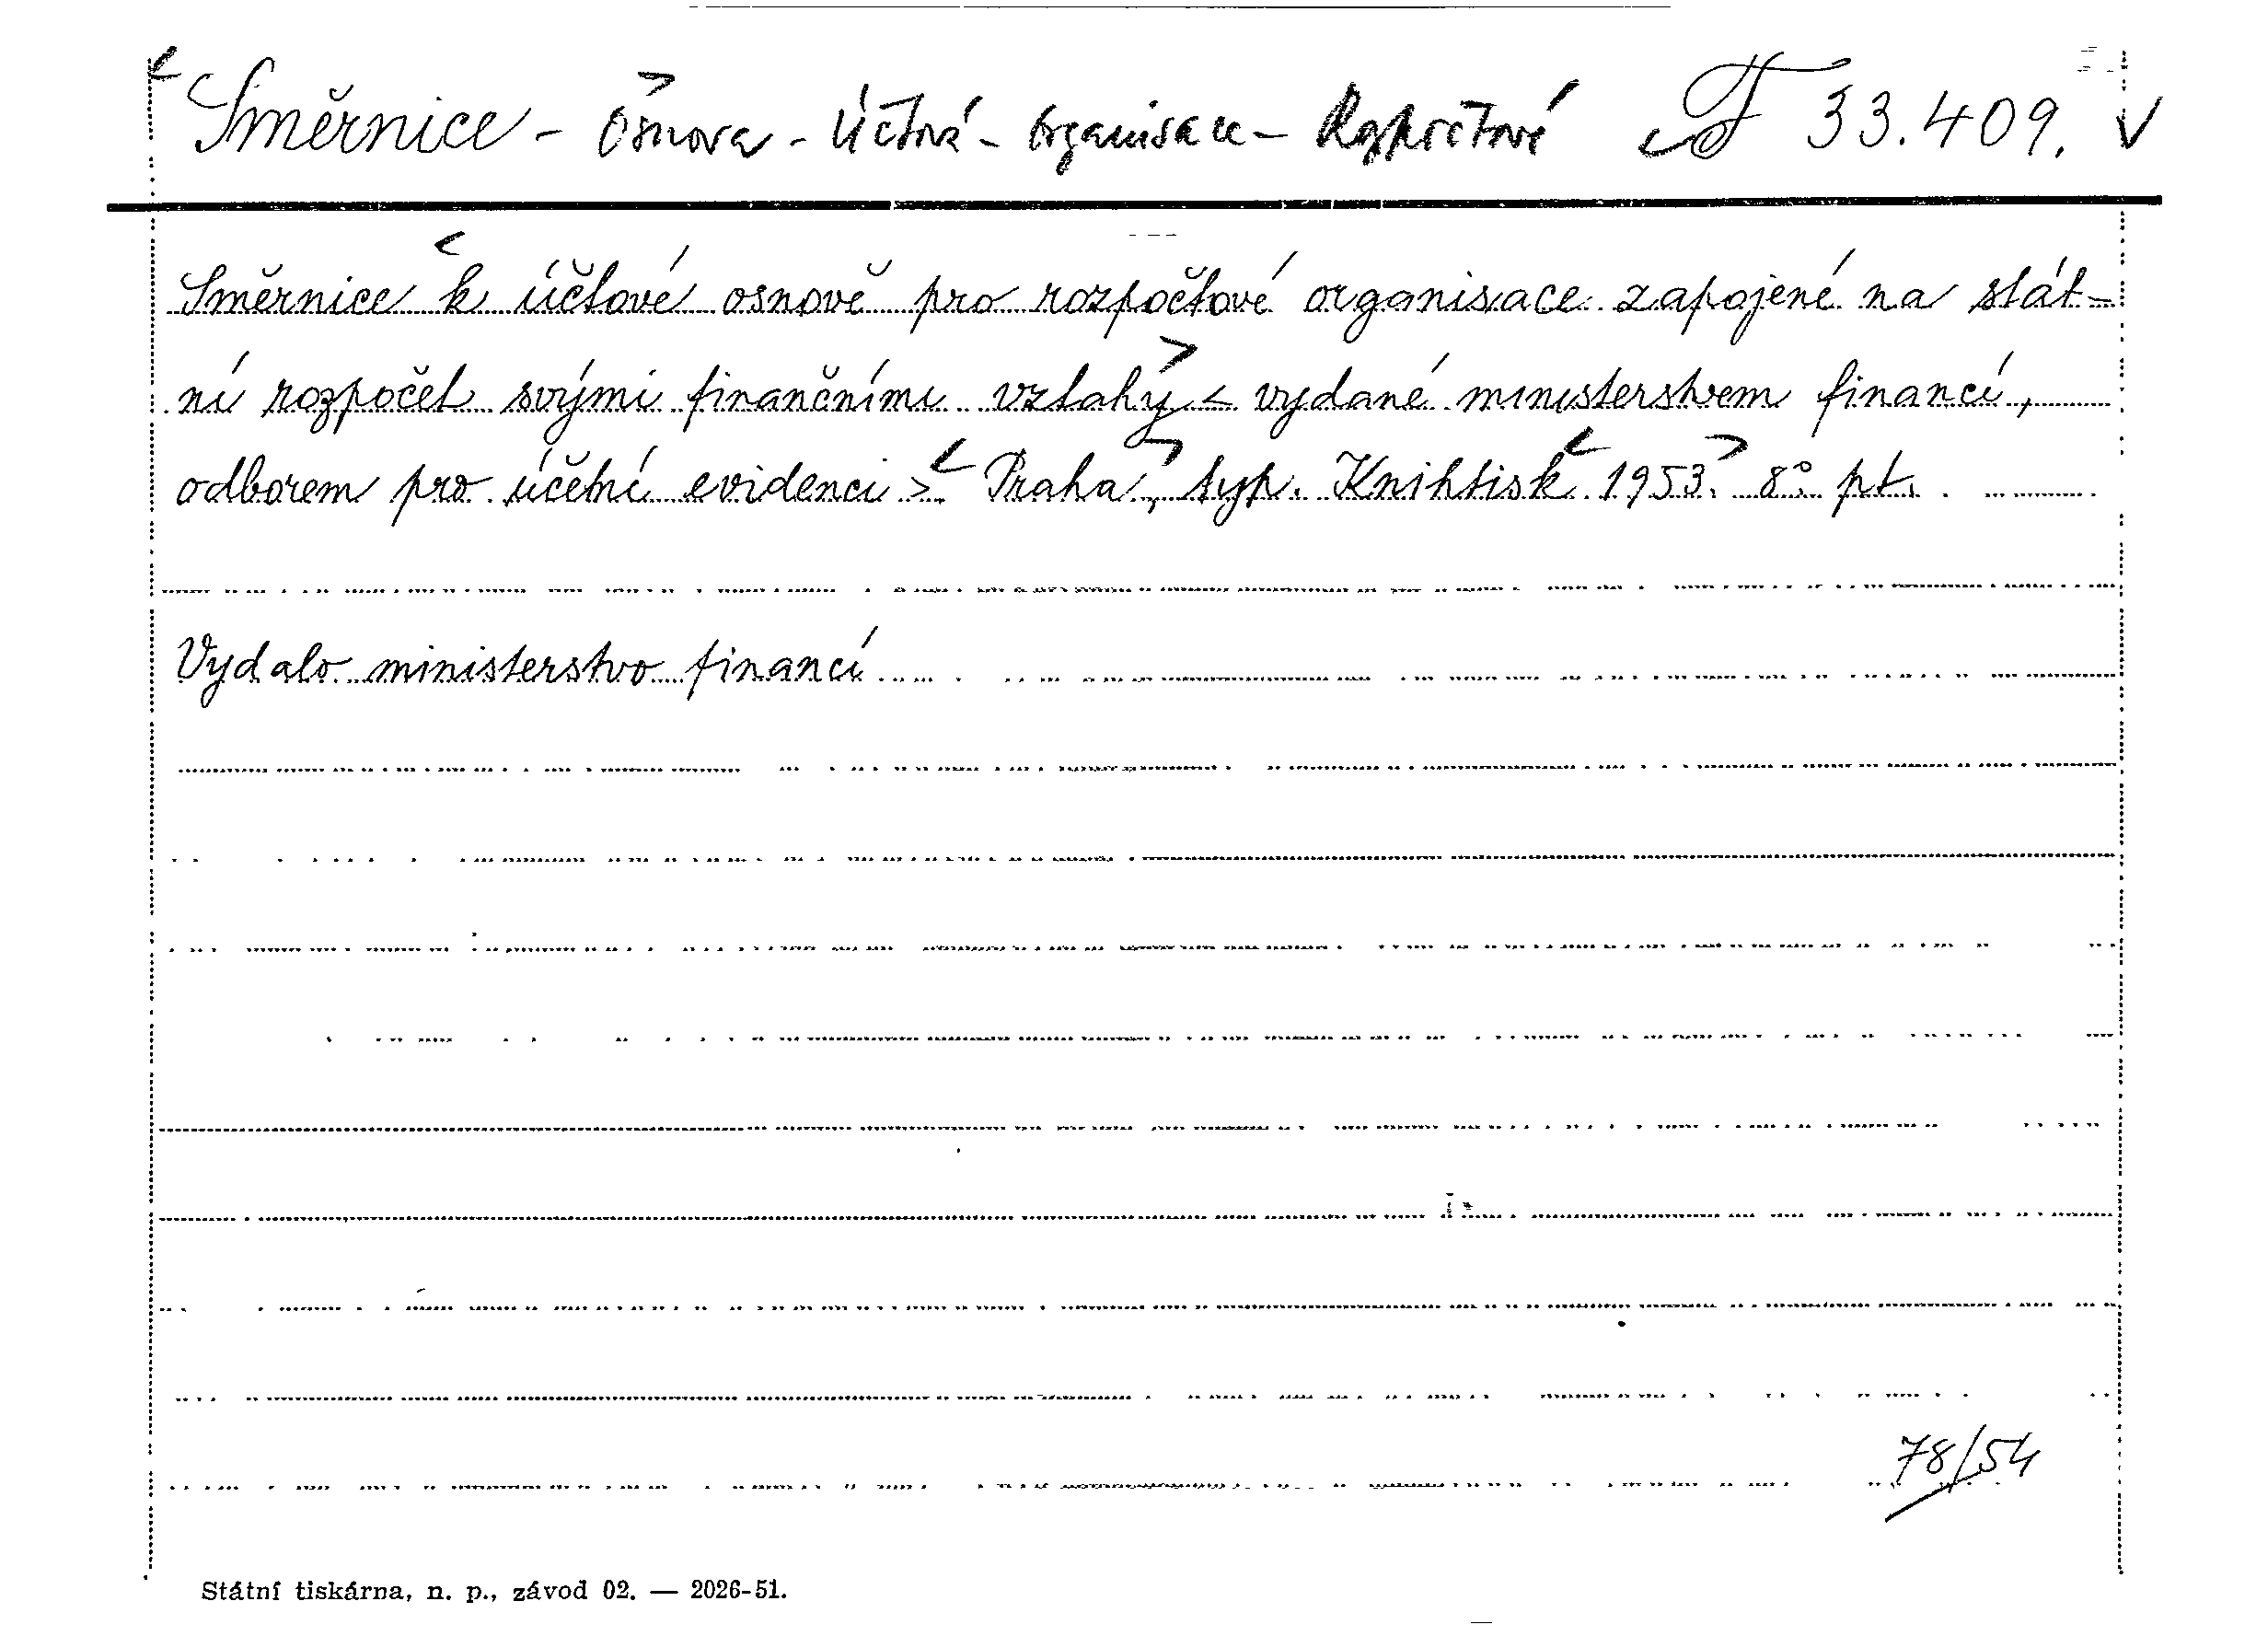 Směrnice - Osnova - Účtová - Organisace - Rozpočtové F 33.409.
Směrnice k účtové osnově pro rozpočtové organisace zapojené na stát-
ní rozpočet svými finančními vztahy < vydané ministerstvem financí,
odborem pro účetní evidenci > Praha, typ. Knihtisk 1953. 8° pt.
Vydalo ministerstvo financí
78/54
Státní tiskárna, n. p., závod 02. — 2026-51.